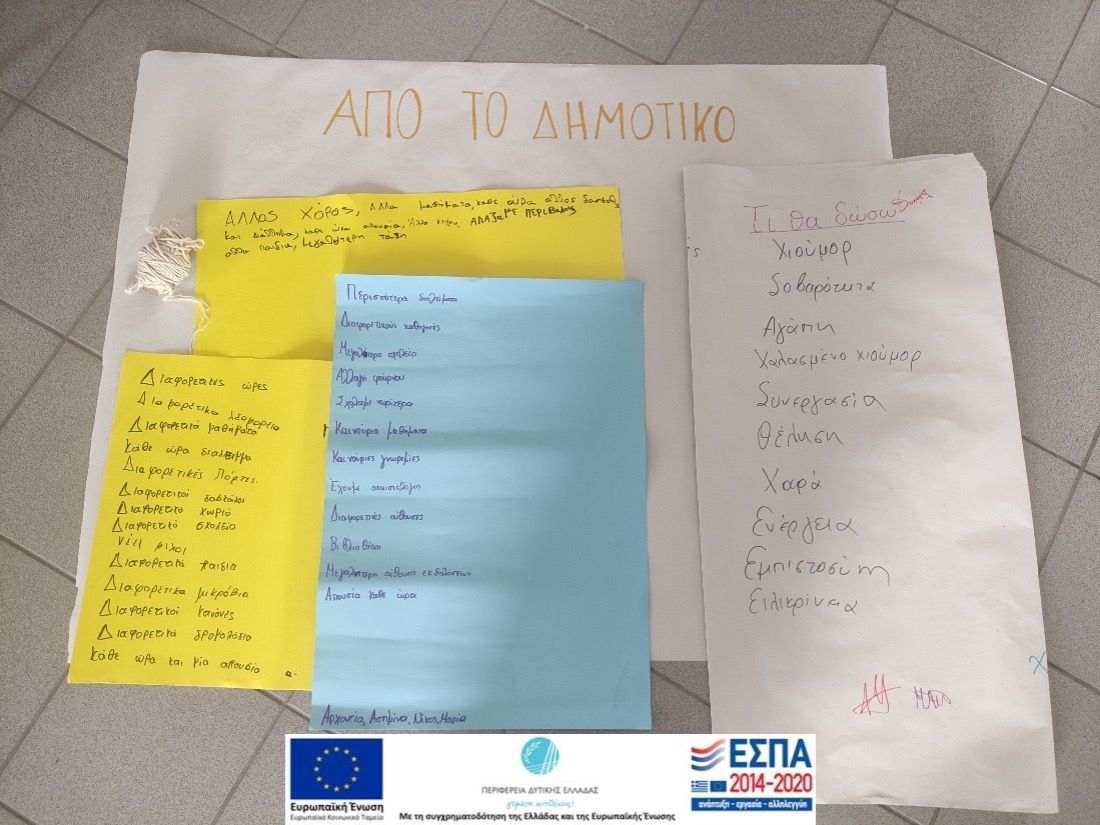 ΑΠΟ ΤΟ ΔΗΜΟΤΙΚΟ
Άλλος χόρος, άλλα μαθήματα, καθε ώρα άλλος
και διάλλημα, καθε ώρα απουσία, Άλλο κτήριο, ΑΛΛΑξαΜΕ ΠΕΡΙΒΑΛΟΝ
αλλα παιδια, μεγαλητερη τάξη
Διαφορετικες ώρες
Διαφορετικα λεοφορεία
Διαφορετικά μαθήματα
Κάθε ώρα διαλειμμα
Διαφορετικές Πόρτες.
Διαφορετικοί δασκάλοι
Διαφορετικό χωριό
Διαφορετικό σχολείο
νέοι φίλοι
Διαφορετικά παιδια
Διαφορετικα μικρόβια.
Διαφορετικοί κανόνες
Διαφορετικά δρομολόγια
Κάθε ώρα και μία απουσία
Περισσότερα διαλείματα
Διαφορετικούς καθηγητές
Μεγαλύτερο σχολείο
Αλλαγή φούρνου
Σχολάμε νωρίτερα
Καινούρια μαθήματα
Καινούριες γνωριμίες
Έχουμε
Διαφορετικές αίθουσες
Βιβλιοθήκη
Μεγαλητερη αίθουσα εκδηλώσεων
Απουσία κάθε ώρα
Αρχοντία, Ασημίνα, Νίκος, Μαρία
Τι θα δώσω
Χιούμορ
Σοβαρότητα
Αγάπη
Χαλασμένο χιούμορ
Συνεργασία
Θέληση
Χαρά
Ενέργεια
Εμπιστοσύνη
Ειλικρίνεια
Χ
Ευρωπαϊκή Ένωση
Ευρωπαϊκό Κοινωνικό Ταμείο
ΠΕΡΙΦΕΡΕΙΑ ΔΥΤΙΚΗΣ ΕΛΛΑΔΑΣ
γεμάτη αντιθέσεις!
Με τη συγχρηματοδότηση της Ελλάδας και της Ευρωπαϊκής Ένωσης
ΕΣΠΑ
2014-2020
ανάπτυξη - εργασία - αλληλεγγύη